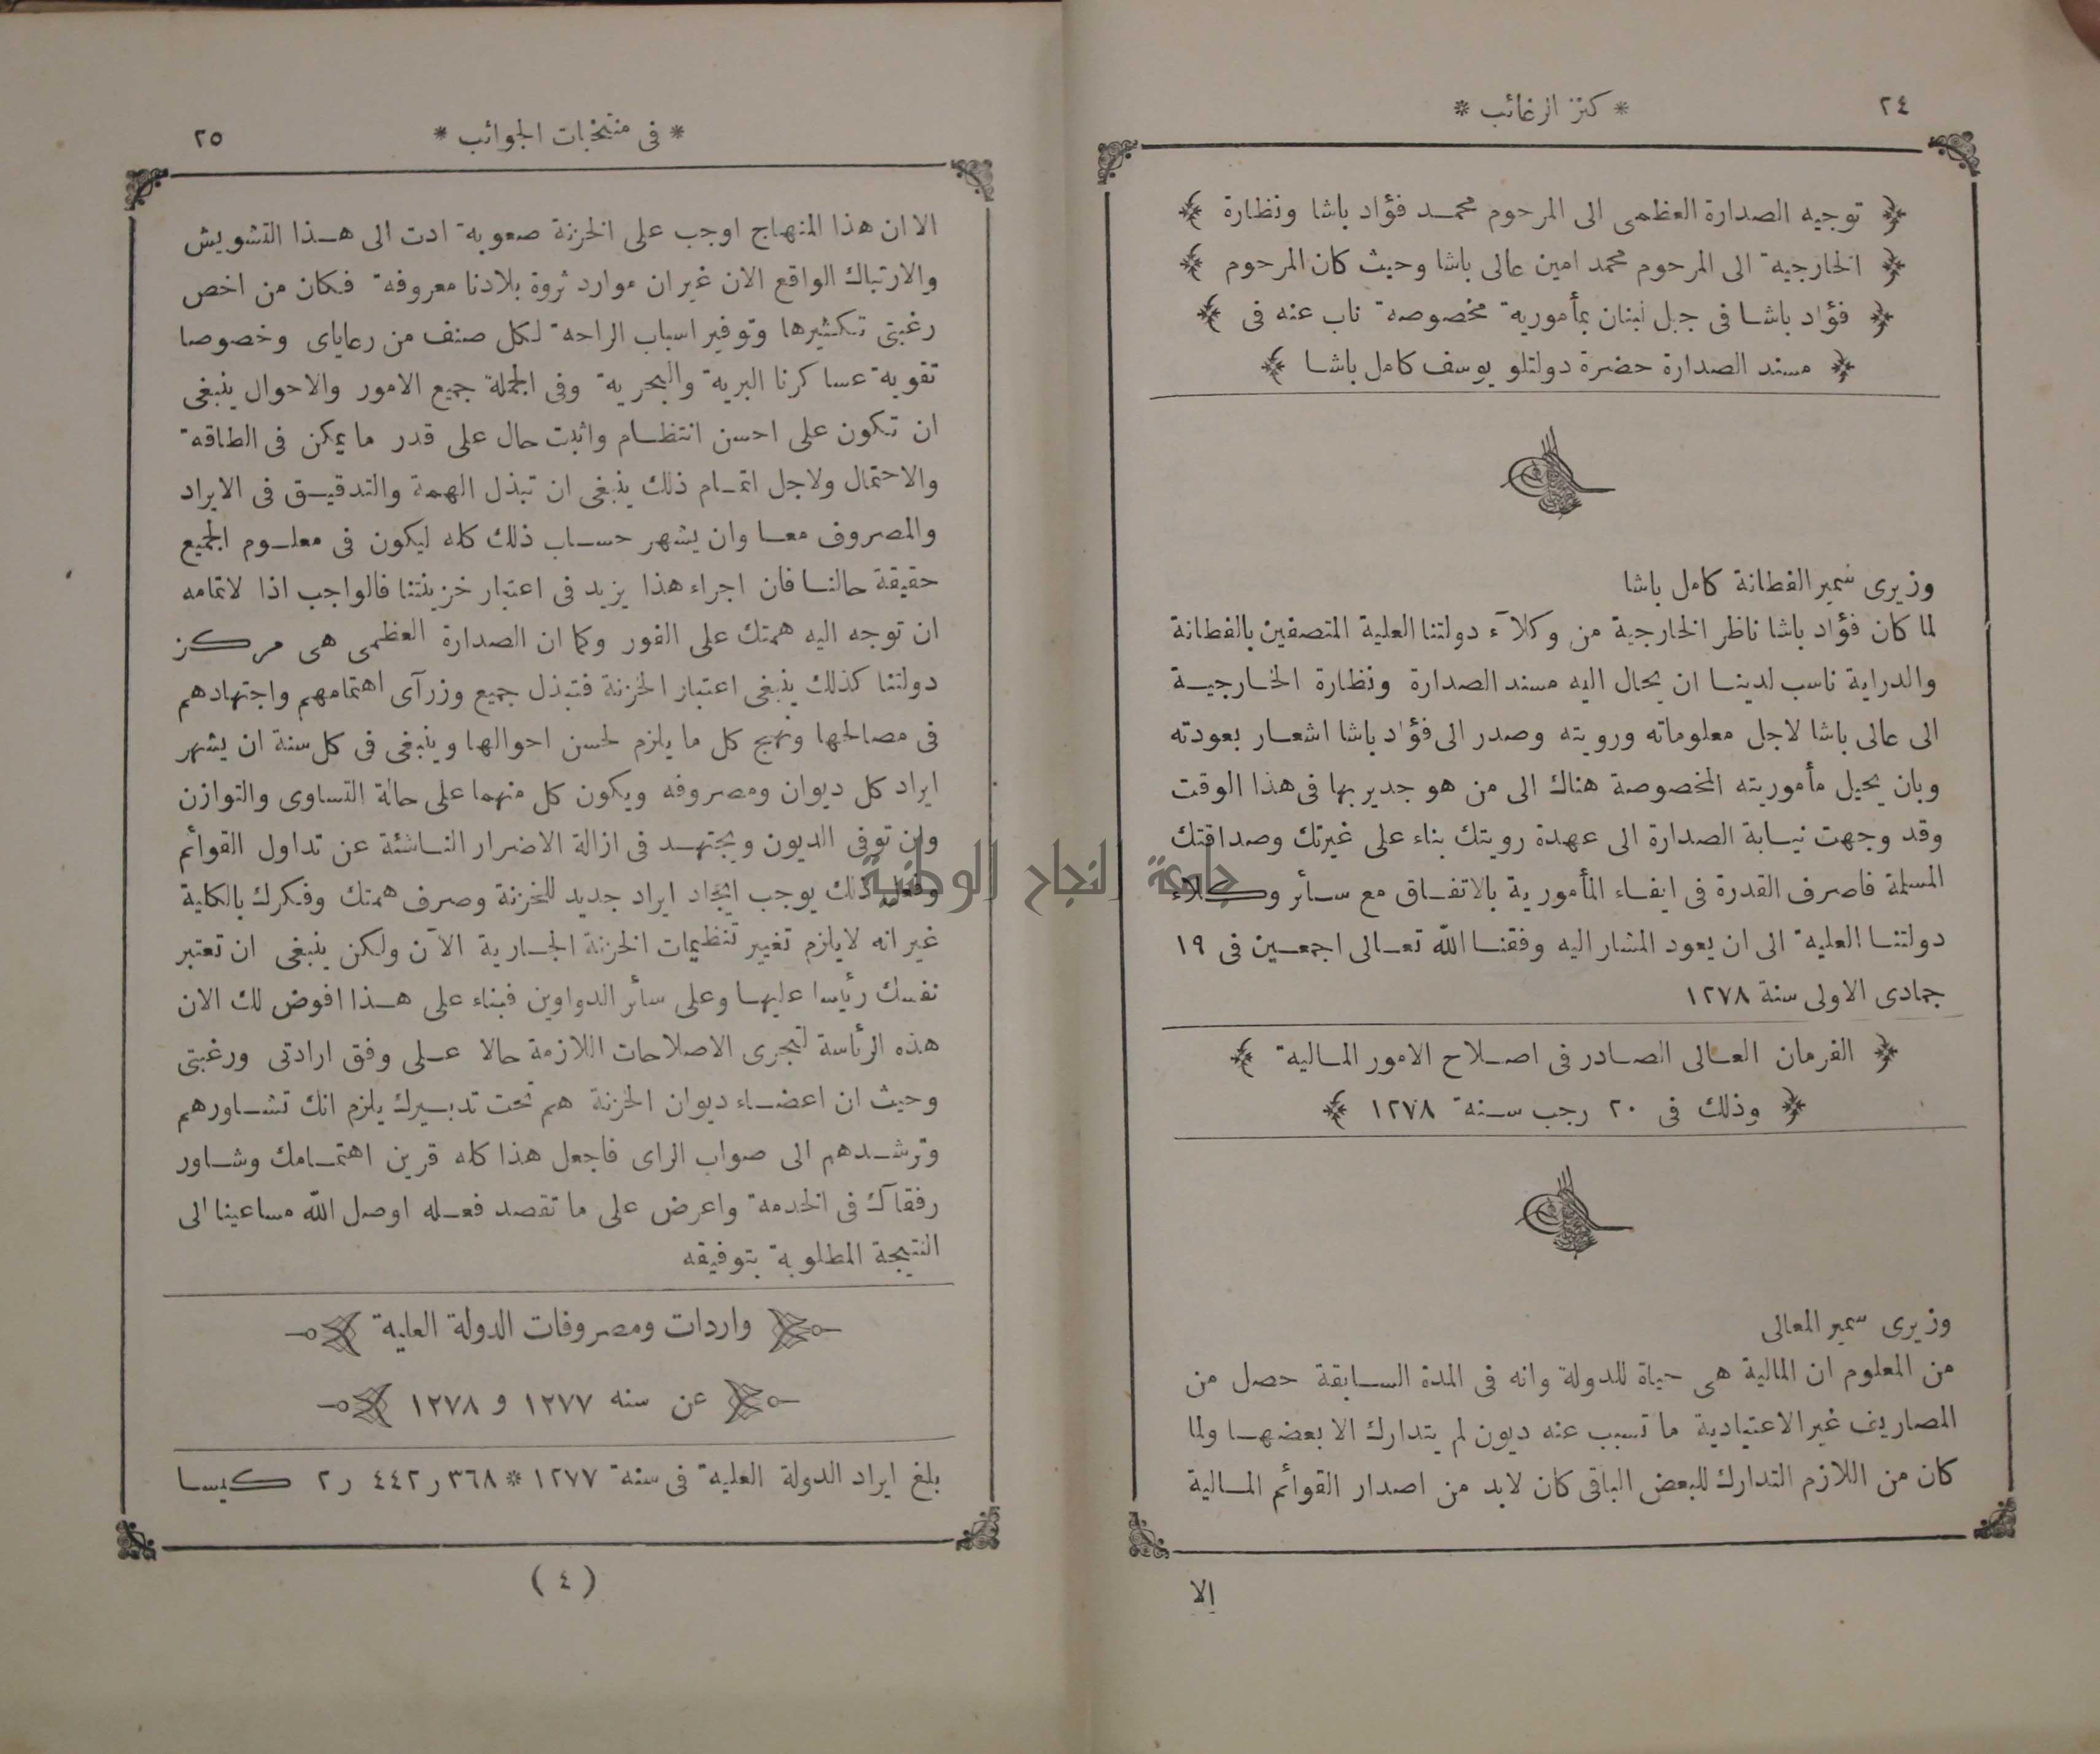 ٢٤
* كنز الرغائب *
﴿ توجيه الصدارة العظمى الى المرحوم محمد فؤاد باشا ونظارة ﴾
﴿ الخارجية الى المرحوم محمد امين عالى باشا وحيث كان المرحوم ﴾
﴿ فؤاد باشا فى جبل لبنان بمأمورية مخصوصة ناب عنه فى ﴾
﴿ مسند الصدارة حضرة دولتلو يوسف كامل باشا ﴾
وزيرى سمير الفطانة كامل باشا
لما كان فؤاد باشا ناظر الخارجية من وكلآء دولتنا العلية المتصفين بالفطانة
والدراية ناسب لدينا ان يحال اليه مسند الصدارة ونظارة الخارجية
الى عالى باشا لاجل معلوماته ورويته وصدر الى فؤاد باشا اشعار بعودته
وبان يحيل مأموريته المخصوصة هناك الى من هو جدير بها فى هذا الوقت
وقد وجهت نيابة الصدارة الى عهدة رويتك بناء على غيرتك وصداقتك
المسلمة فاصرف القدرة فى ايفاء المأمورية بالاتفاق مع سائر وكلاء
دولتنا العلية الى ان يعود المشار اليه وفقنا الله تعالى اجمعين فى ١٩
جمادى الاولى سنة ١٢٧٨
﴿ الفرمان العالى الصادر فى اصلاح الامور المالية ﴾
﴿ وذلك فى ٢٠ رجب سنة ١٢٧٨ ﴾
وزيرى سمير المعالى
من المعلوم ان المالية هى حياة للدولة وانه فى المدة السابقة حصل من
المصاريف غير الاعتيادية ما تسبب عنه ديون لم يتدارك الا بعضها ولما
كان من اللازم التدارك للبعض الباقى كان لابد من اصدار القوائم المالية
الا
* فى منتخبات الجوائب *
٢٥
الا ان هذا المنهاج اوجب على الخزنة صعوبة ادت الى هذا التشويش
والارتباك الواقع الان غير ان موارد ثروة بلادنا معروفة فكان من اخص
رغبتى تكثيرها وتوفير اسباب الراحة لكل صنف من رعاياى وخصوصا
تقوية عساكرنا البرية والبحرية وفى الجملة جميع الامور والاحوال ينبغى
ان تكون على احسن انتظام واثبت حال على قدر ما يمكن فى الطاقة
والاحتمال ولاجل اتمام ذلك ينبغى ان تبذل الهمة والتدقيق فى الايراد
والمصروف معا وان يشهر حساب ذلك كله ليكون فى معلوم الجميع
حقيقة حالنا فان اجراء هذا يزيد فى اعتبار خزينتنا فالواجب اذا لاتمامه
ان توجه اليه همتك على الفور وكما ان الصدارة العظمى هى مركز
دولتنا كذلك ينبغى اعتبار الخزنة فتبذل جميع وزرآى اهتمامهم واجتهادهم
فى مصالحها ونهج كل ما يلزم لحسن احوالها وينبغى فى كل سنة ان يشهر
ايراد كل ديوان ومصروفه ويكون كل منهما على حالة التساوى والتوازن
وان توفى الديون ويجتهد فى ازالة الاضرار الناشئة عن تداول القوائم
وفعل ذلك يوجب ايجاد ايراد جديد للخزنة وصرف همتك وفكرك بالكلية
غير انه لايلزم تغيير تنظيمات الخزنة الجارية الآن ولكن ينبغى ان تعتبر
نفسك رئيسا عليها وعلى سائر الدواوين فبناء على هذا افوض لك الان
هذه الرئاسة لتجرى الاصلاحات اللازمة حالا على وفق ارادتى ورغبتى
وحيث ان اعضاء ديوان الخزنة هم تحت تدبيرك يلزم انك تشاورهم
وترشدهم الى صواب الراى فاجعل هذا كله قرين اهتمامك وشاور
رفقآك فى الخدمة واعرض على ما تقصد فعله اوصل الله مساعينا الى
النتيجة المطلوبة بتوفيقه
واردات ومصروفات الدولة العلية
عن سنه ١٢٧٧ و ١٢٧٨
بلغ ايراد الدولة العلية فى سنة ١٢٧٧ * ٣٦٨ر٤٤٢ر٢ كيسا
(٤)
جامعة النجاح الوطنية